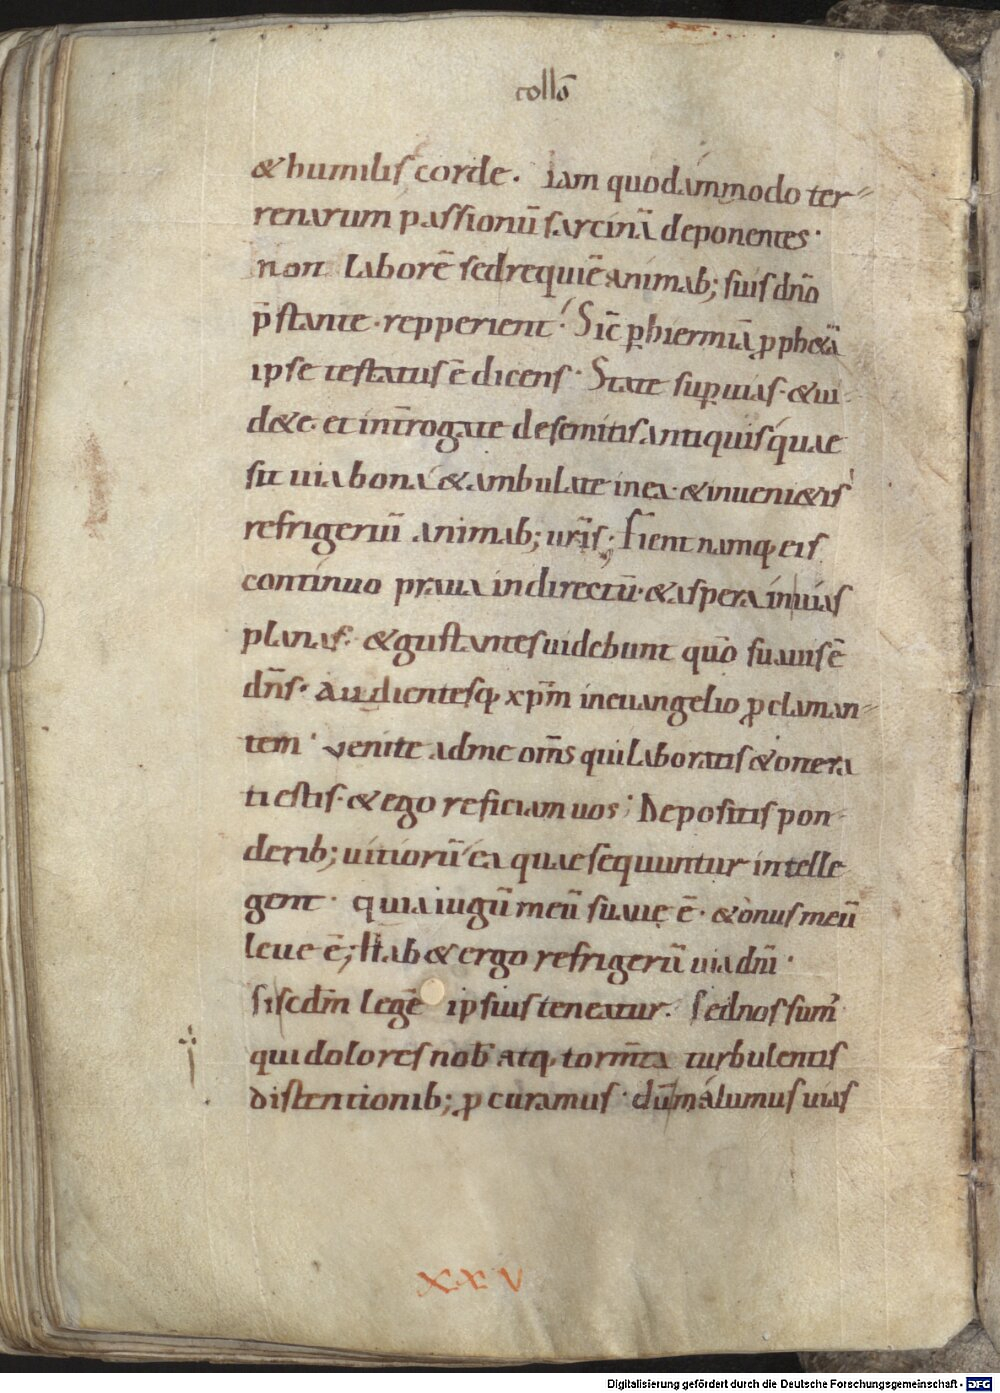 collō
& humilis corde. iam quodammodo ter-
renarum passionū sarcinā deponentes·
non laborē sed requiē animab; suis dn̄o
p̄stante· repperient. Sic̄ ꝑ hiermiā ꝓph&ā
ipse testatus ē dicens· State sup uias· & ui-
d&e· et int̄rogate de semitis antiquis quae
sit uia bona & ambulate in ea· & inueni&is
refrigeriū animab; ur̄is; Fient namq; eis
continuo praua in directū· & aspera in uias
planas· & gustantes uidebunt quō suauis ē
dn̄s· Audientesq; xp̄m in euangelio ꝓclaman-
tem· Venite ad me om̄s qui laboratis & onera
ti estis· & ego reficiam uos; Depositis pon-
derib; uitiorū ea quae sequuntur intelle
gent· quia iugū meū suaue ē· & onus meū
leue ē; Hab& ergo refrigeriū uia dn̄i·
si scdm̄ legē ipsius teneatur. Sed nos sum'
qui dolores nob atq; torm̄ta turbulentis
distentionib; ꝓcuramus· dū malumus uias
XXV
Digitalisierung gefördert durch die Deutsche Forschungsgemeinschaft - DFG